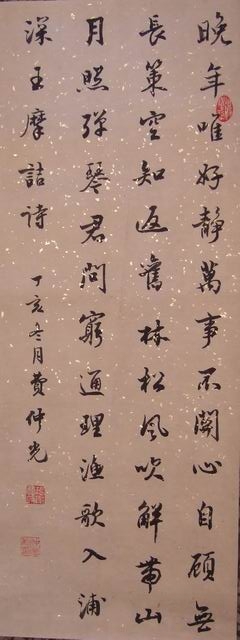 晚年唯好靜萬事不關心自顧無
長策空知返舊林松風吹解帶山
月照彈琴君問窮通理漁歌入浦
深王摩詰詩 丁亥冬月費仲光